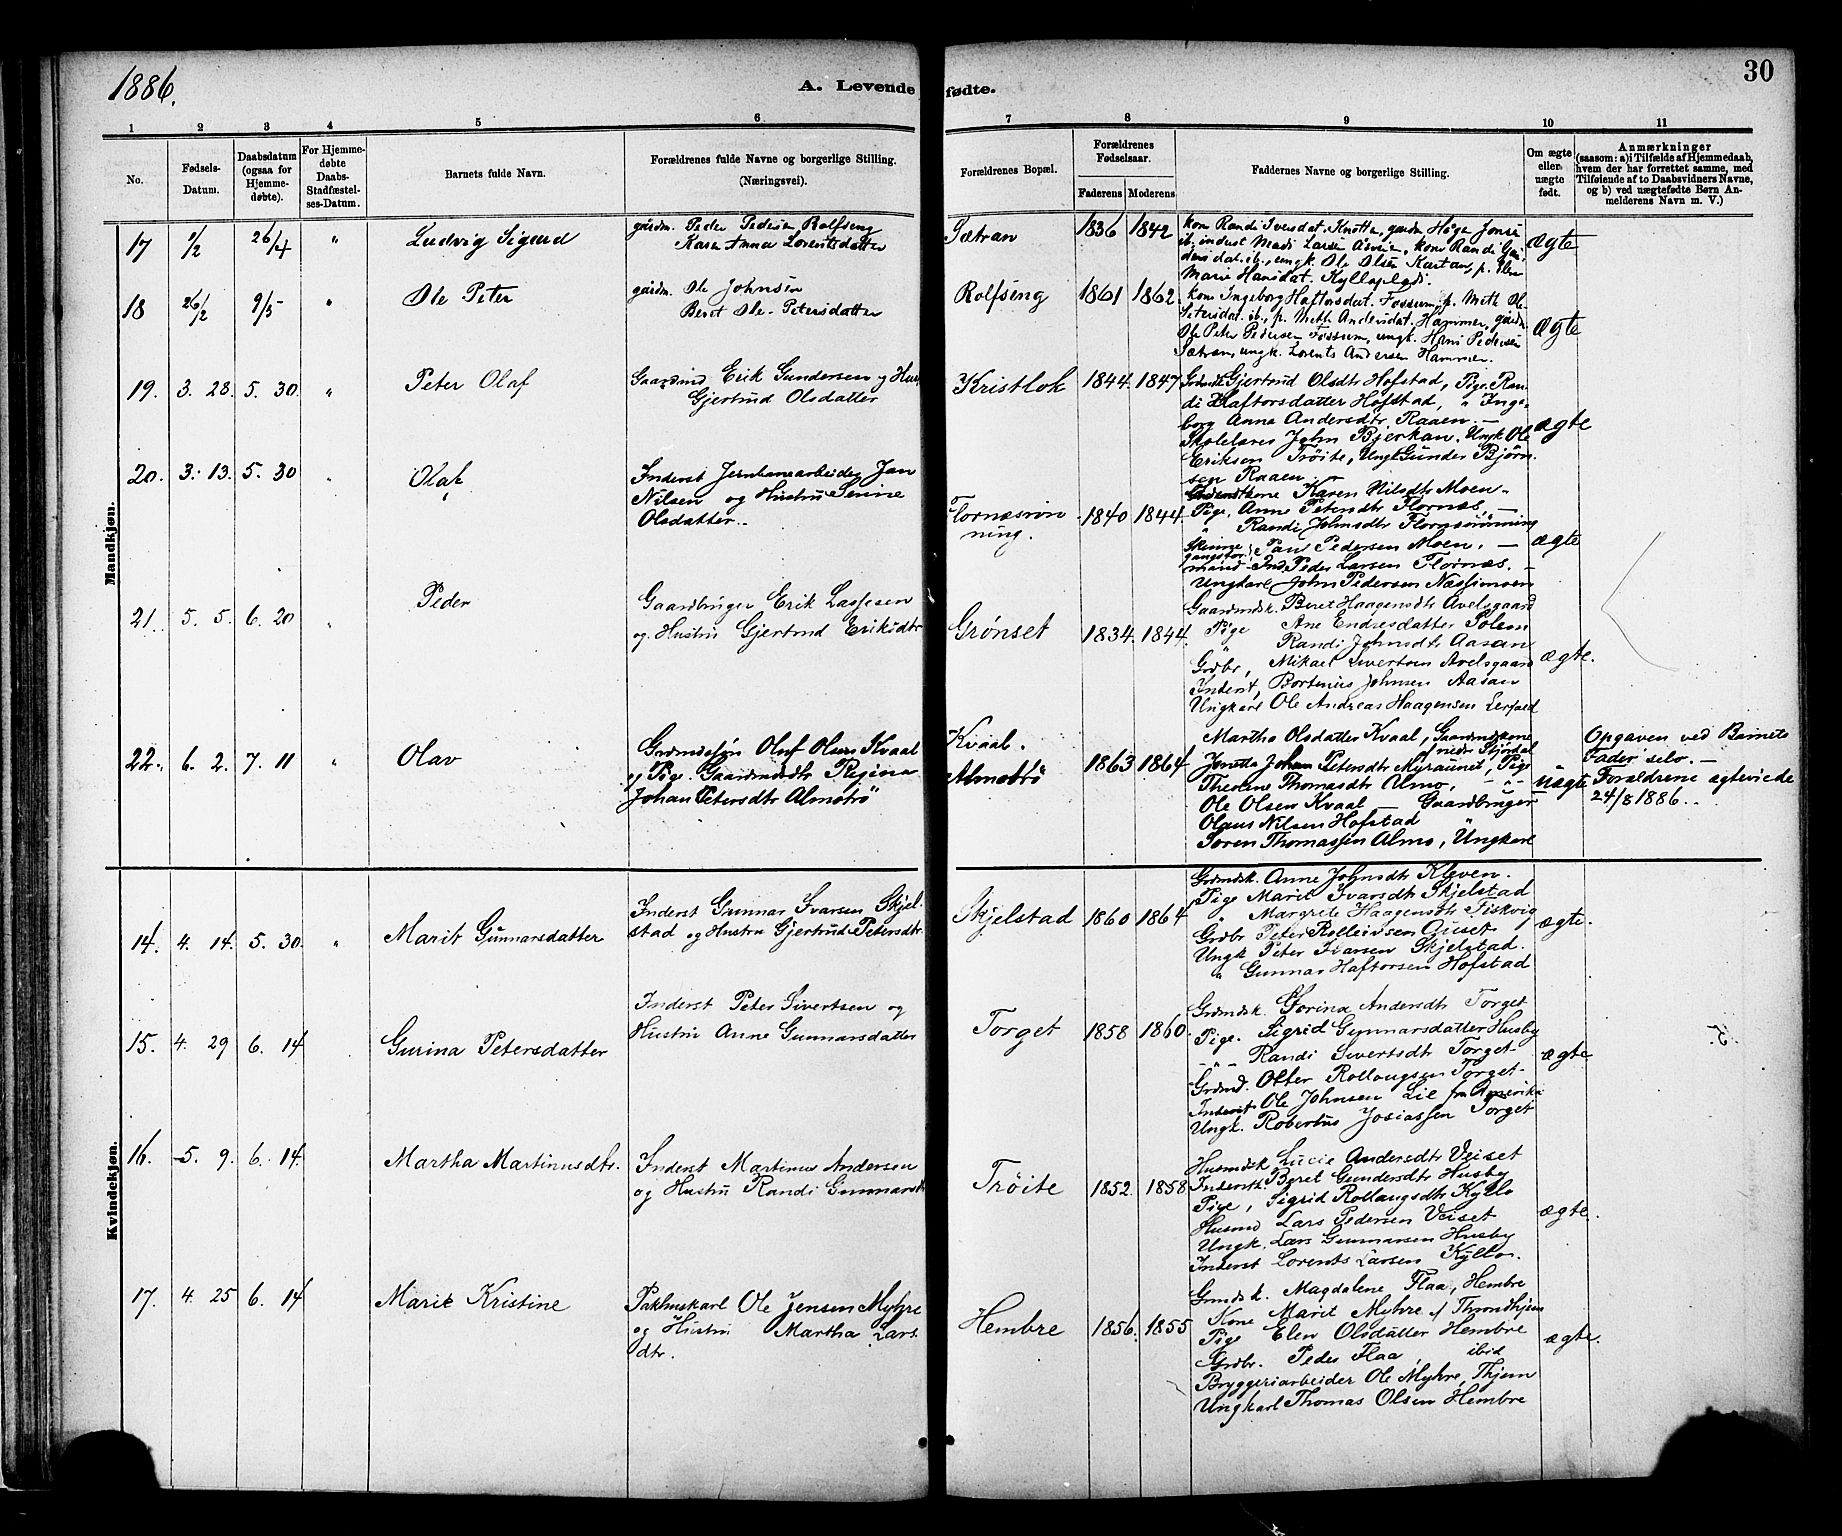 1886.
A. Levende fødte.
30
1 2 3 4 5 6 7 8 9 10 11
No.
Fødsels-
Datum.
Daabsdatum
(ogsaa for
Hjemme-
døbte).
For Hjemme-
døbte
Daabs-
Stadfæstel-
ses-Datum.
Barnets fulde Navn.
Forældrenes fulde Navne og borgerlige Stilling.
(Næringsvei).
Forældrenes Bopæl.
Forældrenes
Fødselsaar.
Faderens Moderens
Faddernes Navne og borgerlige Stilling.
Om ægte
eller
uægte
født.
Anmærkninger
(saasom: a) i Tilfælde af Hjemmedaab,
hvem der har forrettet samme, med
Tilføiende af to Daabsvidners Navne,
og b) ved uægtefødte Børn An-
melderens Navn m. V.)
Mandkjøn.
17 1/2 26/4 " Ludvig Sigurd
gårdm. Peder Pedersen Rolfseng
Karen Anna Lorentsdatter
Sætran 1836 1842
kone Randi Iversdat. Knotten, gårdm.
ib, inderst Mads Larsen
Ole Olsen
Marie Hansdat. Kylloplads.
ægte
18 26/2 9/5 " Ole Peter
gårdm. Ole Johnsen
Beret Ole-Petersdatter
Rolfseng 1861 1862
kone Ingeborg Haftorsdat. Fossum, p. Meth Ole
Petersdat. ib, p. Meth Andersdat. Hammer, gårdm.
Ole Peter Pedersen Fossum, ungk. Hans Pedersen
Sætran, ungk. Lorents Andersen Hammer.
ægte
19. 3. 28. 5. 30. " Peter Olaf
Gaardmd Erik Gundersen og Hus
Gjertrud Olsdatter
Kristlok 1844. 1847
Grdmdk Gjertrud Olsdtr Hofstad, Pige. Ran-
di Haftorsdatter Hofstad, " Inge-
borg Anna Andersdtr Raaen —
Skolelærer John Bjerkan. Ungk Ole
Eriksen Tröite, Ungk Gunder Bjørn-
sen Raaen.
ægte
20. 3. 13. 5. 30 " Olaf
Inderst Jernbanearbeider Jan
Nilsen og Hustru Serine
Olsdatter.
Flornæsrön-
ning. 1840 1844
Karen Nilsdtr Moen
Pige. Anne Petersdtr Flornæs. —
" Randi Johnsdtr Flornæsrönning
Paul Pedersen Moen. —
Ind. Peder Larsen Flornæs. —
Ungkarl John Pedersen Næssimoen
ægte
21. 5. 5. 6. 20 " Peder
Gaardbruger Erik Lassesen
og Hustru Gjertrud Eriksdtr
Grønset 1834. 1844.
Gaardmdk. Beret Haagensdtr Avelsgaard
Pige Ane Endresdatter Solem
" Randi Johnsdtr Aasan
Grdbr, Mikael Sivertsen Avelsgaard
Inderst, Bortinus Johnsen Aasan
Ungkarl Ole Andreas Haagensen Lerfald
ægte.
22. 6. 2. 7. 11 " Olav
Grdmdssön Oluf Olsen Kvaal
og Pige Gaardmdsdtr Regina
Johan Petersdtr Almotrö
Kvaal.
Almotrö 1863 1864
Martha Olsdatter Kvaal, Gaardmdkone
nedre Stjørdal
Jonetta Johan Petersdtr Myraunet, Pige
Theoline Thomasdtr Almo,
Ole Olsen Kvaal — Gaardbruger
Olaus Nilsen Hofstad
Soren Thomassen Almo, Ungkarl
uægte
Opgaven ved Barnets
Fader selv. —
Forældrene ægteviede
24/8 1886.
Kvindekjøn.
14. 4. 14. 5. 30. " Marit Gunnarsdatter
Inderst Gunnar Ivarsen Skjel-
stad og Hustru Gjertrud Petersdtr
Skjelstad 1860 1864
Grdmdsk. Anne Johnsdtr Kleven.
Pige Marit Ivarsdtr Skjelstad
" Margrete Haagensdtr Fiskvig
Grdbr Peter Rolleivsen Auset
Ungk Peter Ivarsen Skjelstad.
" Gunnar Haftorsen Hofstad
ægte.
15. 4. 29 6. 14 Gurina Petersdatter
Inderst Peter Sivertsen og
Hustru Anne Gunnarsdatter
Torget 1858 1860.
Grdmdsk. Gorina Andersdtr Torget
Pige. Sigrid Gunnarsdatter Husby
— " — Randi Sivertsdtr Torget
Grdmd. Otter Rollaugsen Torget
Inderst Ole Johnsen Lie fra Amerika
Ungk. Robertus Josiassen Torget
ægte
16. 5. 9. 6. 14. Martha Martinusdtr.
Inderst Martinus Andersen
og Hustru Randi Gunnarsdtr
Tröite 1852. 1858
Husmdsk Lucie Andersdtr Veiset
Inderstk. Beret Gundersdtr Husby
Pige, Sigrid Rollaugsdtr Kyllo
Husmd Lars Pedersen Veiset
Ungk. Lars Gunnarsen Husby
Inderst Lorents Larsen Kyllo.
ægte.
17. 4. 25 6. 14 Marie Kristine
Pakhuskarl Ole Jensen Myhre
og Hustru Martha Lars-
dtr.
Hembre 1856. 1855
Grmdsk. Magdalene Flaa, Hembre
Kone Marit Myhre af Throndhjem
Pige Elen Olsdatter Hembre
Grdbr. Peder Flaa, ibid
Bryggeriarbeider Ole Myhre, Thjem
Ungkarl Thomas Olsen Hembre
ægte.